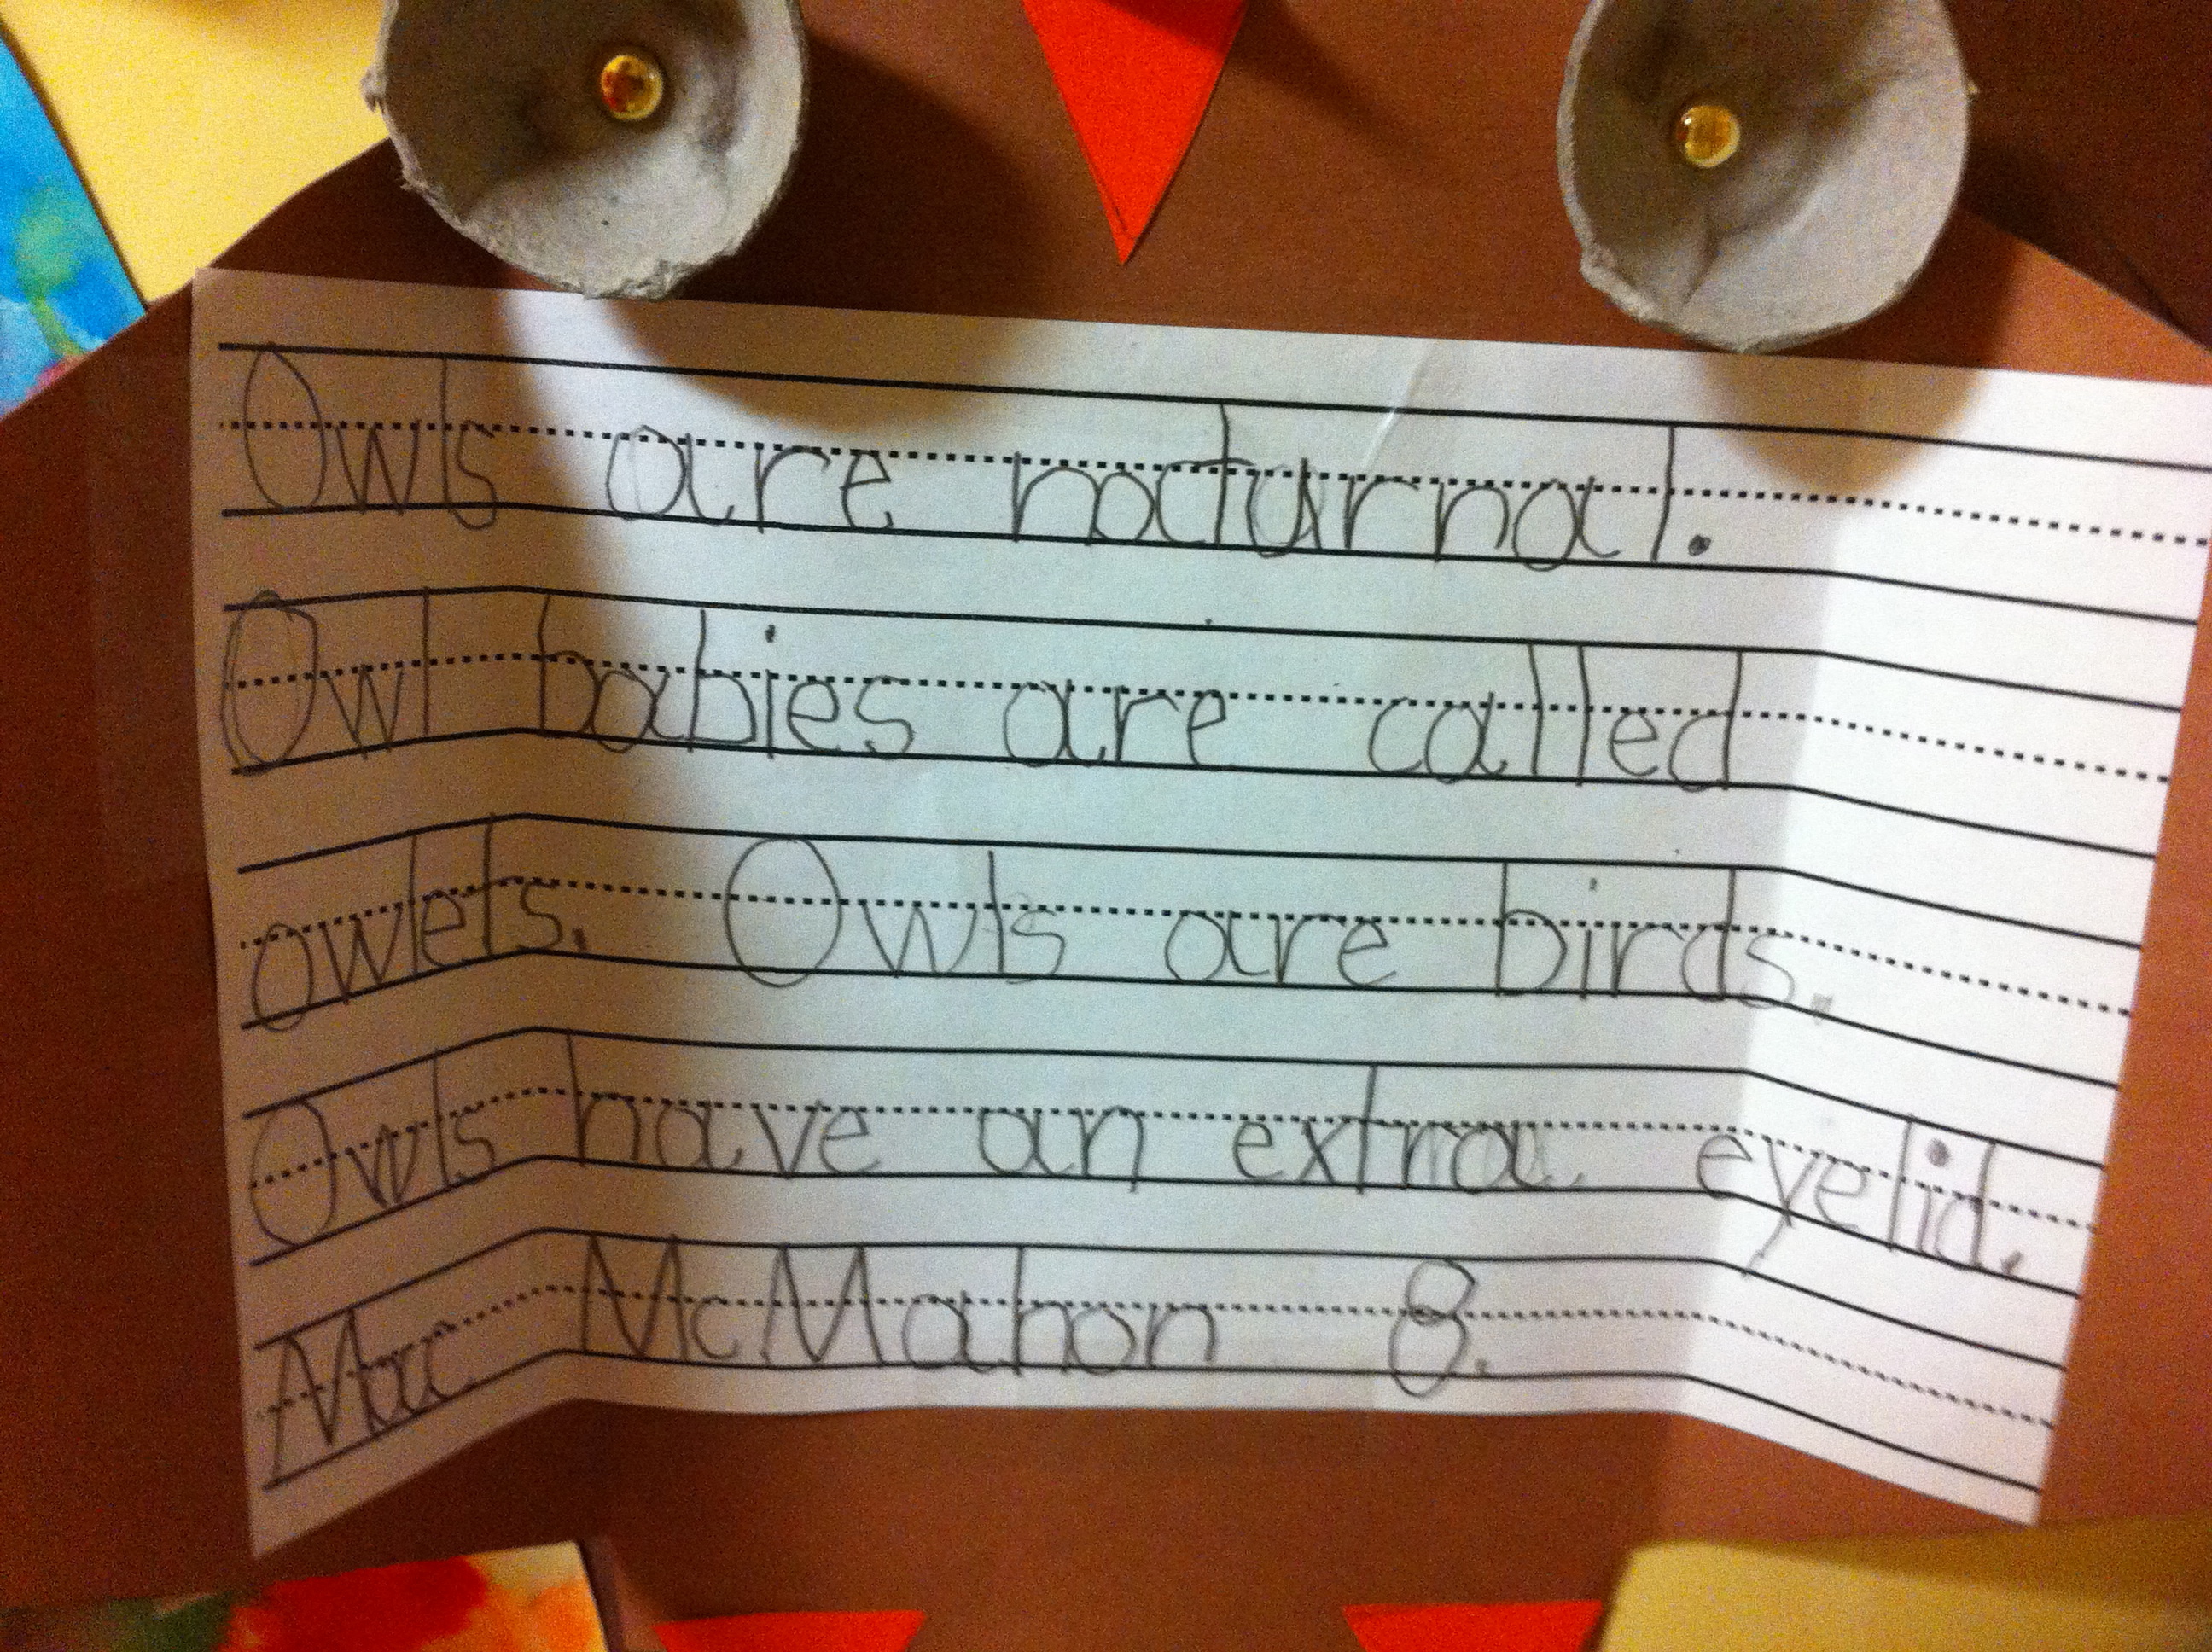 Owls are nocturnal.
Owl babies are called
owlets. Owls are birds.
Owls have an extra eyelid.
McMahon 8.